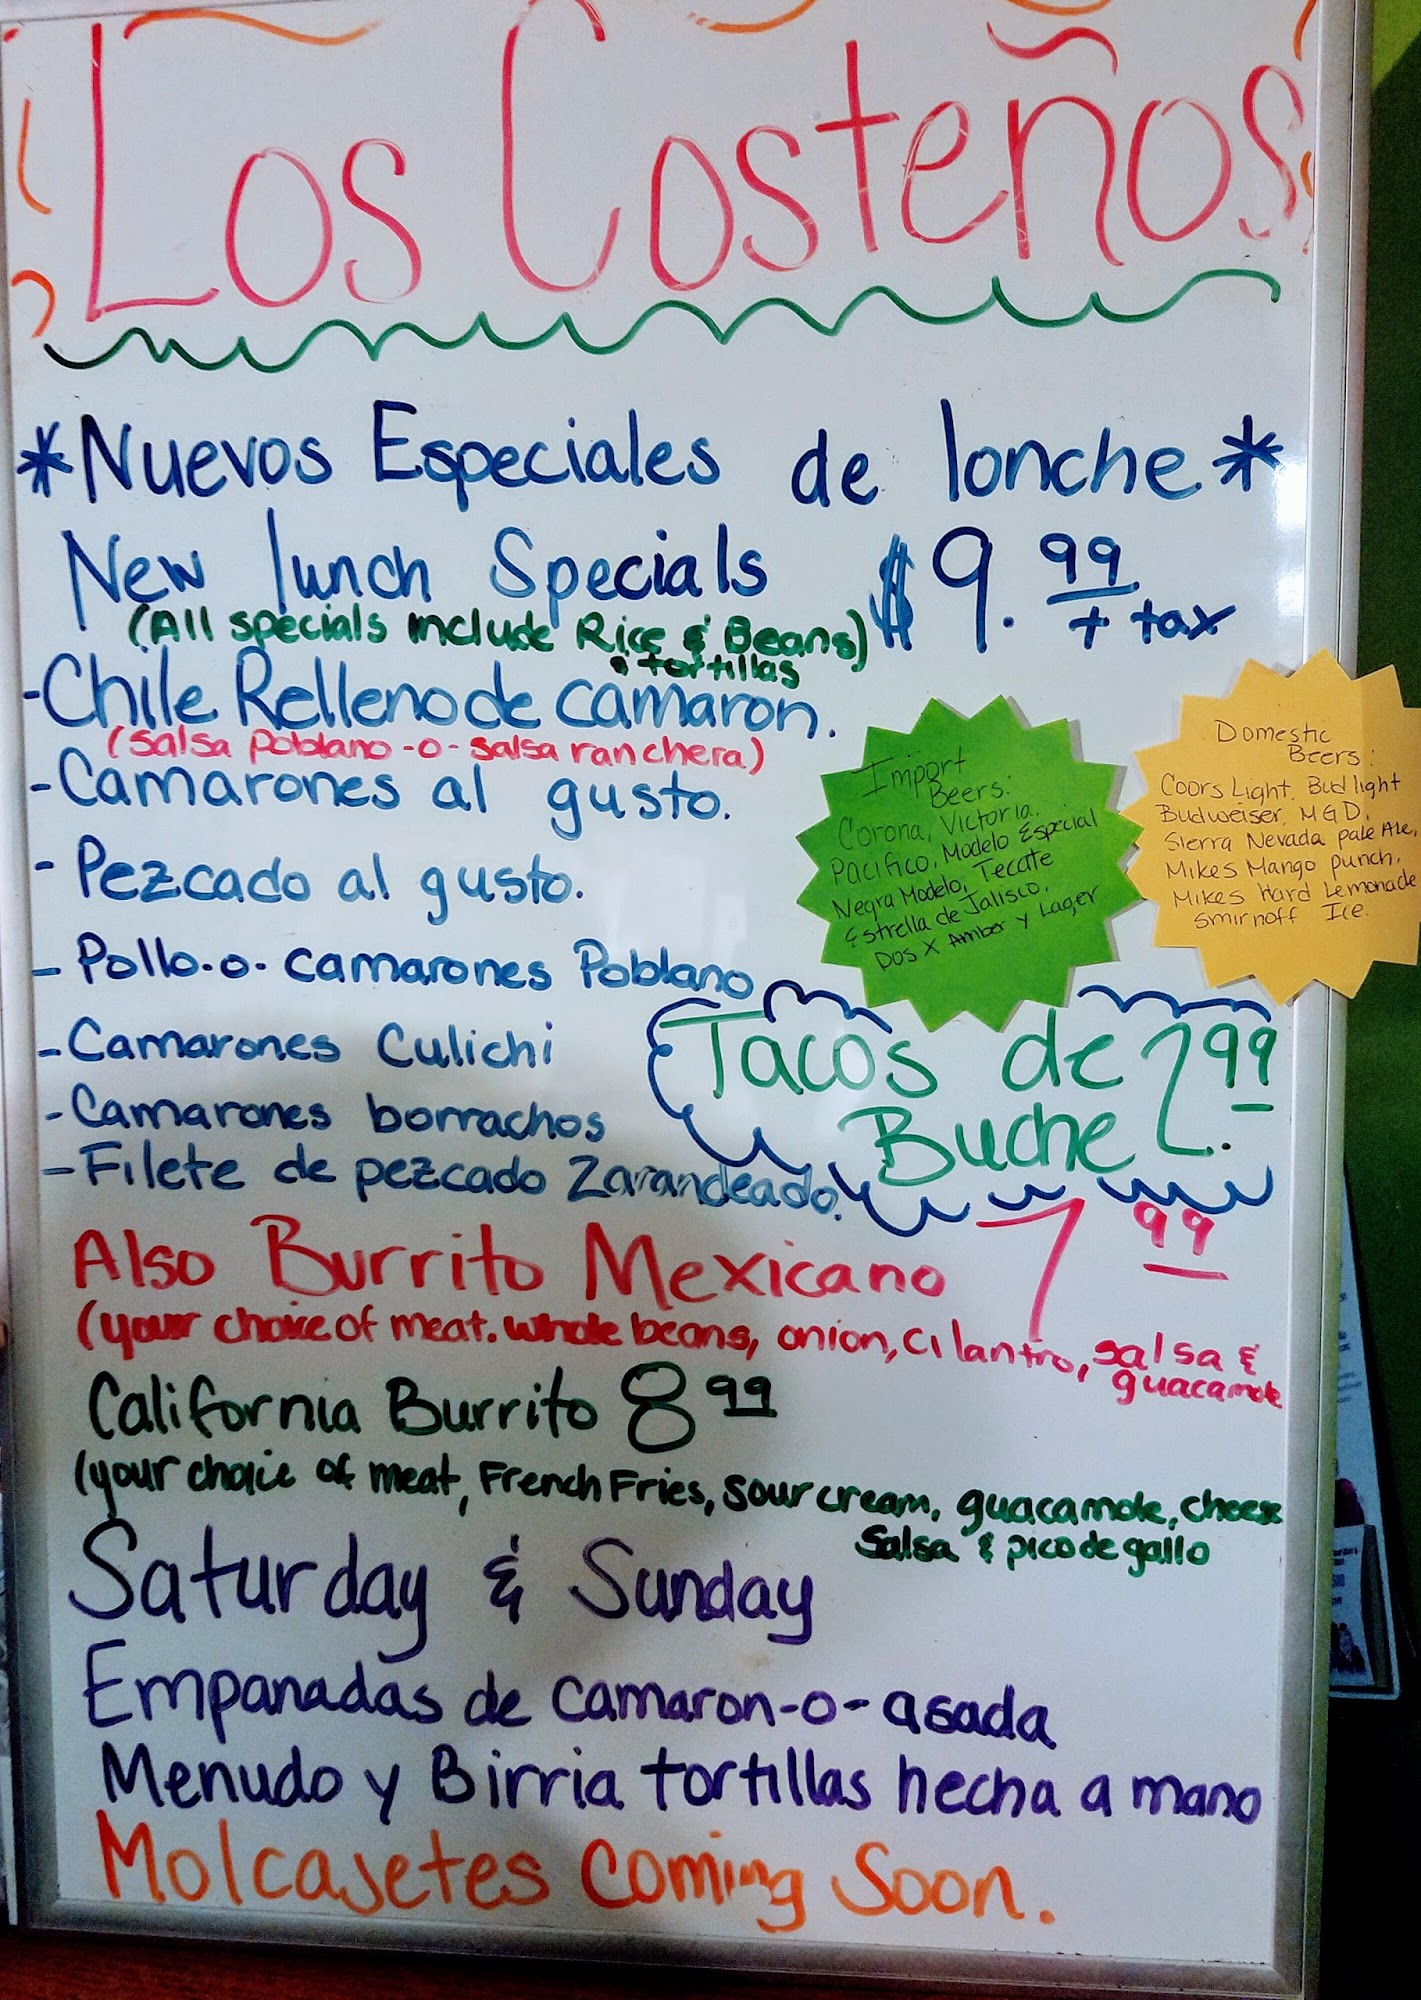 Los Costeños
*Nuevos Especiales de lonche*
New lunch Specials $9.99 + tax
(All specials include Rice & Beans)
& tortillas
-Chile Relleno de camaron.
(salsa poblano -o- salsa ranchera)
-Camarones al gusto.
- Pezcado al gusto.
- Pollo-o-camarones Poblano
-Camarones Culichi
-Camarones borrachos
-Filete de pezcado Zarandeado.
Import
Beers:
Corona, Victoria.
Pacifico, Modelo Especial
Negra Modelo, Tecate
Estrella de Jalisco,
Dos X Amber y Lager
Domestic
Beers:
Coors Light, Bud light
Budweiser, MGD,
Sierra Nevada pale Ale,
Mikes Mango punch,
Mikes Hard Lemonade
Smirnoff Ice.
Tacos de
Buche 2.99
Also Burrito Mexicano 7 99
(your choice of meat. whole beans, onion, cilantro, salsa &
guacamole
California Burrito 8 99
(your choice of meat, French Fries, sour cream, guacamole, cheese
Salsa & pico de gallo
Saturday & Sunday
Empanadas de camaron-o-asada
Menudo y Birria tortillas hecha a mano
Molcajetes Coming Soon.